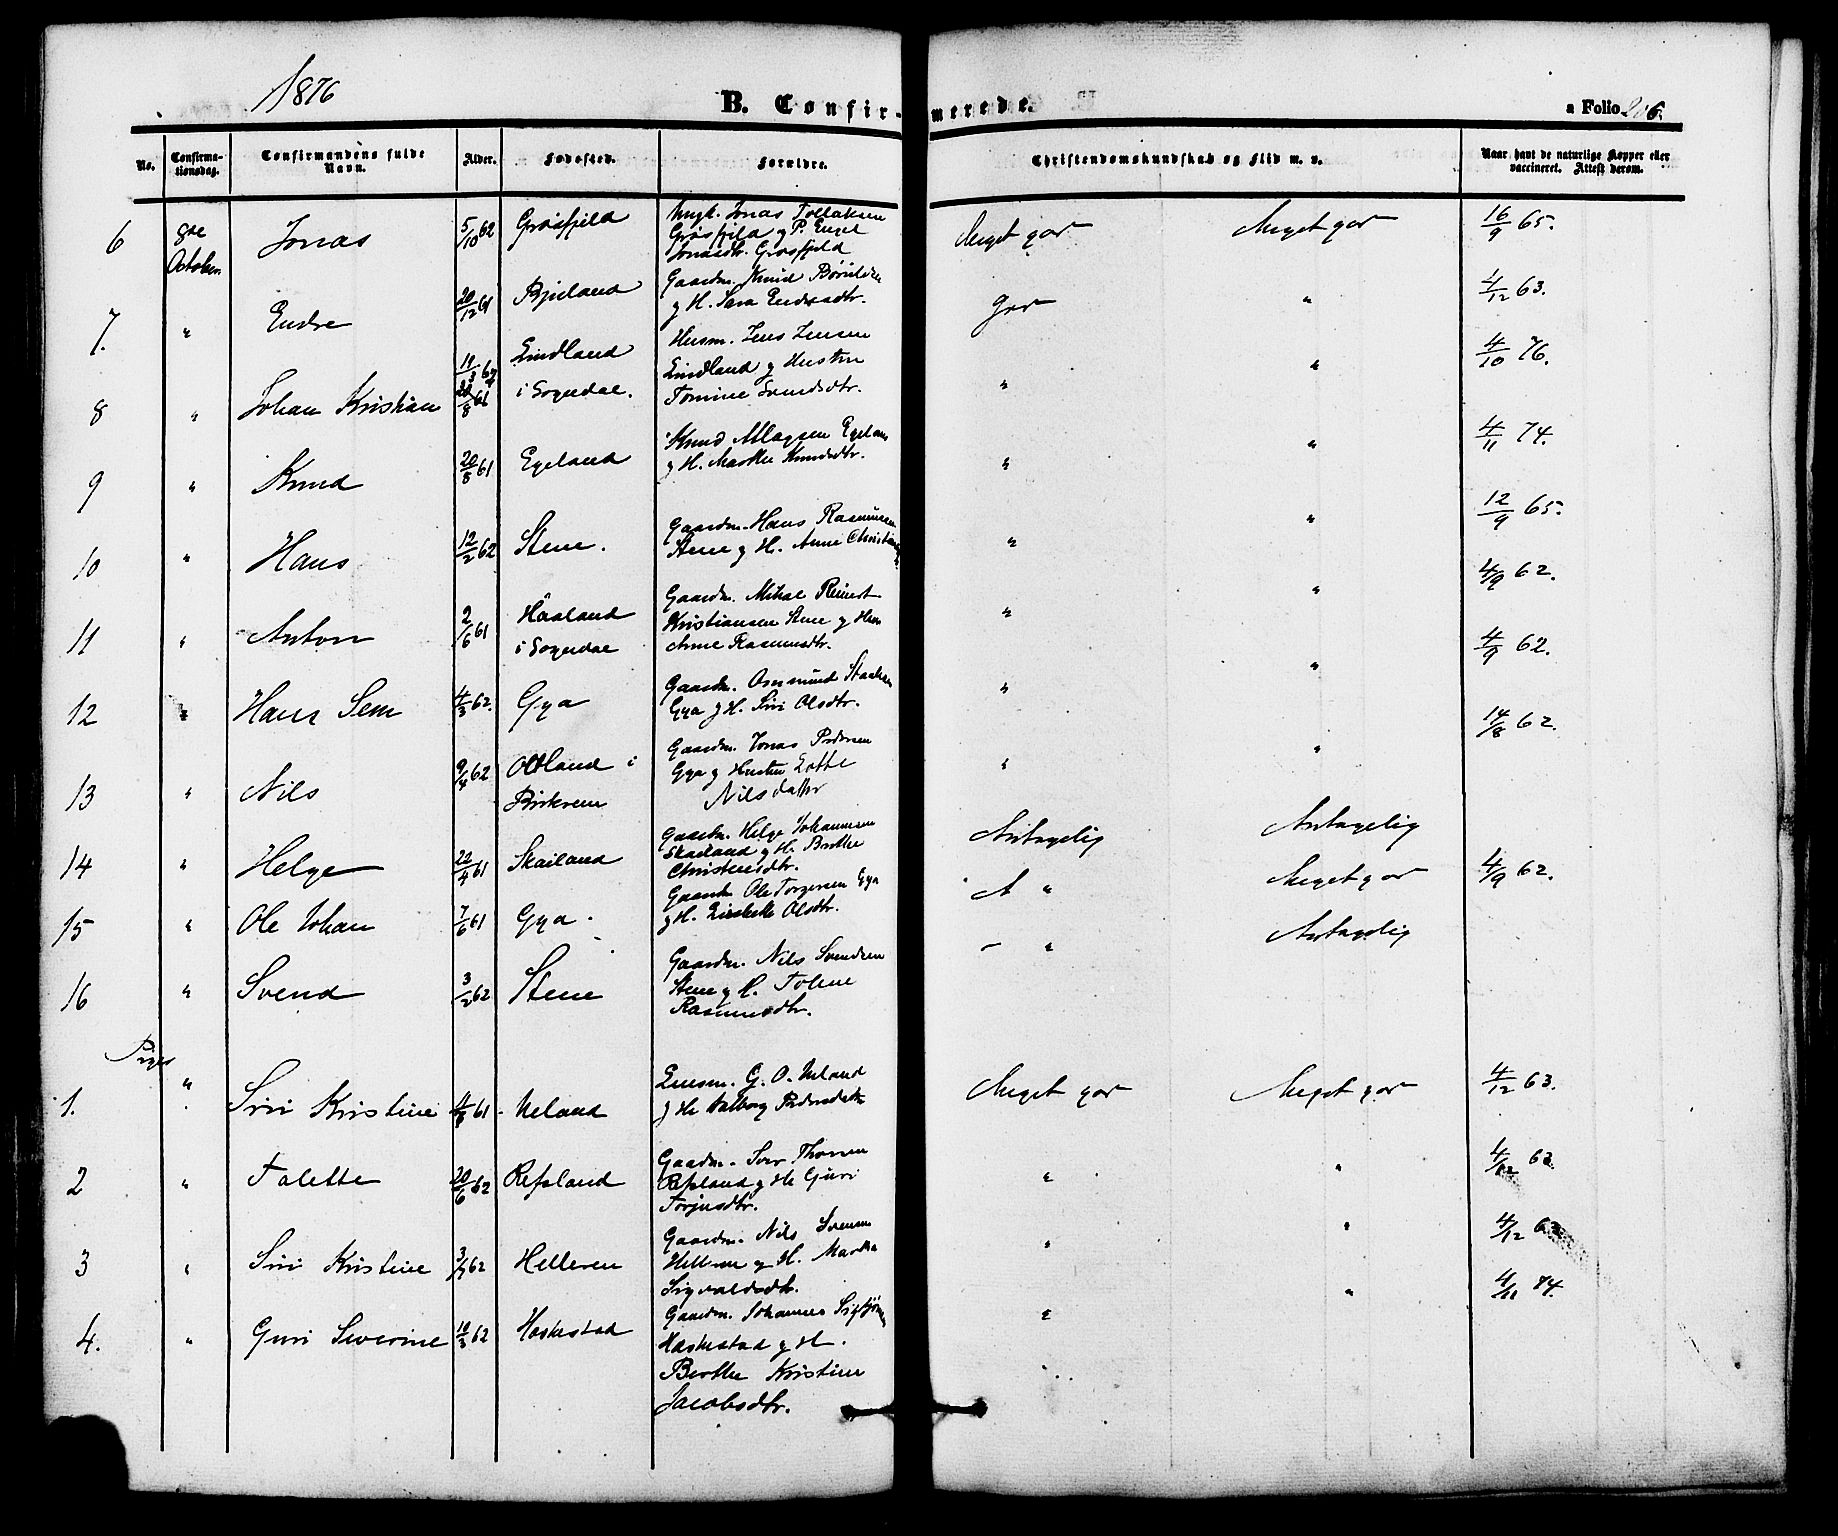 1876
B. Confir-
merede.
a Folio 206.
No.
Confirma-
tionsdag.
Confirmandens fulde
Navn.
Alder.
Fødested.
Forældre.
Christendomskundskab og Flid m. v.
Naar havt de naturlige Kopper eller
vaccineret. Attest derom.
6 8de October Jonas 5/10 62 Grøsfjeld
Ungk. Jonas Tollaksen
Grøsfjeld og P. Engel
Jonasdtr. Grøsfjeld
Meget god Meget god 16/9 65.
7. " Endre 20/12 61 Bjuland
Gaardm. Knud
og H. Sara Endresdtr.
god " 4/12 63.
8 " Johan Kristian 20/8 61 Lindland
i Sogndal.
Husm. Jens Jensen
Lindland og Hustru
Tomine Svendsdtr.
" " 4/10 76.
9 " Knud 20/8 61 Egeland
Knud Atlagsen Egeland
og H. Marthe Knudsdtr.
" " 4/11 74.
10 " Hans 12/2 62 Stene.
Gaardm. Hans Rasmussen
Stene og H. Anne
" " 12/9 65.
11 " Anton 2/6 61 Haaland
i Sogndal
Gaardm. Mikal Reinert
Kristiansen Stene og Hu
Anne Rasmusdtr.
" " 4/9 62.
12 " Hans Sem 4/3 62. Gya
Gaardm. Osmund
Gya og H. Siri Olsdtr.
" " 4/9 62.
13 " Nils 9/4 62 Ottland i
Birkrem
Gaardm. Jonas Pedersen
Gya og Hustru Lotte
Nilsdatter
" " 14/8 62.
14 " Helge 22/4 61 Skailand
Gaardm. Helge Johannesen
Skailand og H. Berthe
Christensdtr.
Antagelig Antagelig
15 " Ole Johan 7/6 61 Gya.
Gaardm. Ole Torgersen Gya
og H. Lisebeth Olsdtr.
A " Meget god 4/9 62.
16 " Svend 3/2 62 Stene
Gaardm. Nils Svendsen
Stene og H. Toline
Rasmusdtr.
- " Antagelig
Piger
1. " Siri Kristine 61 Ueland
Lensm. G. O. Ueland
og H. Valborg Pedersdatter
Meget god Meget god 4/12 63.
2 " Talette 20/6 62 Refsland
Gaardm. Siver Thorsen
Refsland og H. Guri
Torjusdtr.
" " 4/12 63
3 " Siri Kristine 62 Helleren
Gaardm. Nils Svensen
Helleren og H. Martha
Sigvaldsdtr.
" " 4/12 63
4. " Guri Severine 10/3 62 Haskestad
Gaardm. Johannes
Haskestad og H.
Berthe Kristine
Jacobsdtr.
" " 4/11 74.